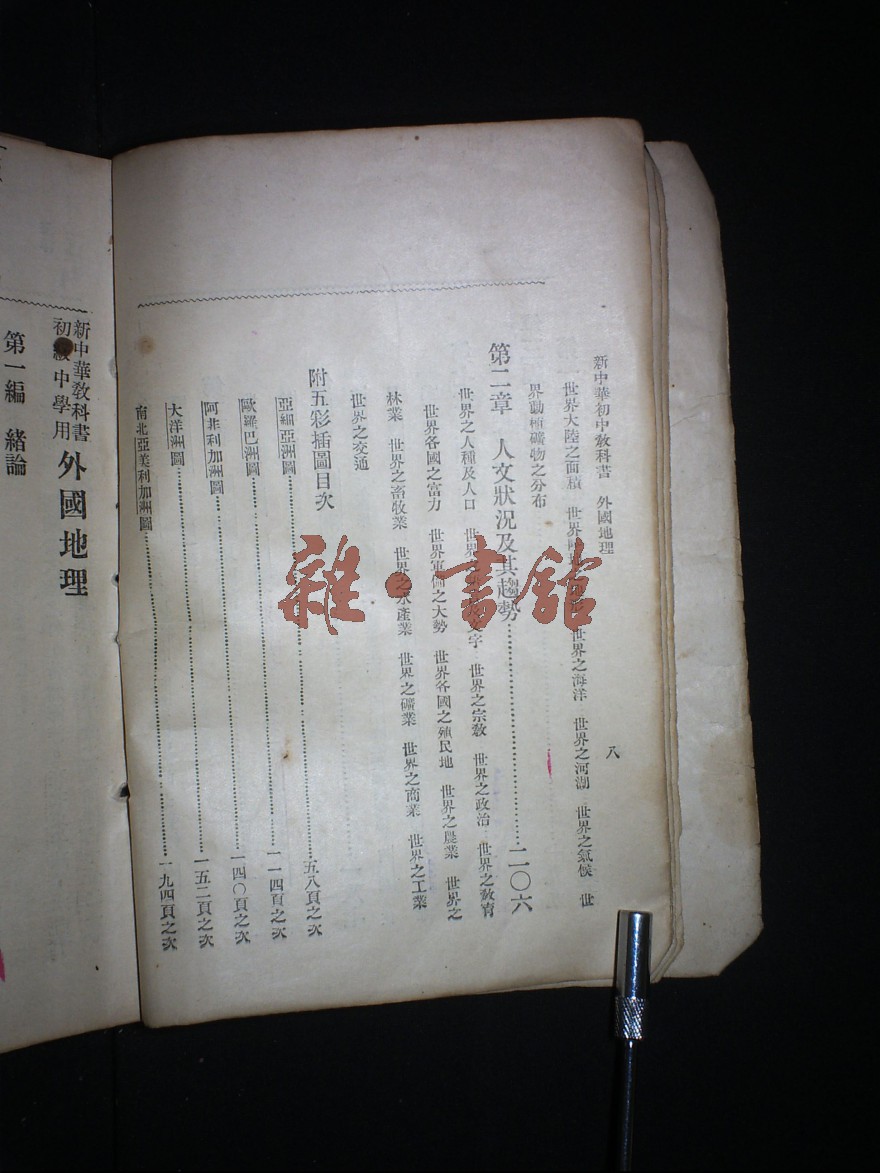 新中華初中教科書　外國地理
八
世界大陸之面積　世界　世界之海洋　世界之河湖　世界之氣候　世
界動植礦物之分布
第二章　人文狀況及其趨勢……二〇六
世界之人種及人口　世界　文字　世界之宗教　世界之政治　世界之教育
世界各國之富力　世界軍備之大勢　世界各國之殖民地　世界之農業　世界之
林業　世界之畜牧業　世界之水產業　世界之礦業　世界之商業　世界之工業
世界之交通
附五彩插圖目次
亞細亞洲圖……五八頁之次
歐羅巴洲圖……一一四頁之次
阿非利加洲圖……一四〇頁之次
大洋洲圖……一五二頁之次
南北亞美利加洲圖……一九四頁之次
新中華教科書
初級中學用
外國地理
第一編　緒論
雜·書館